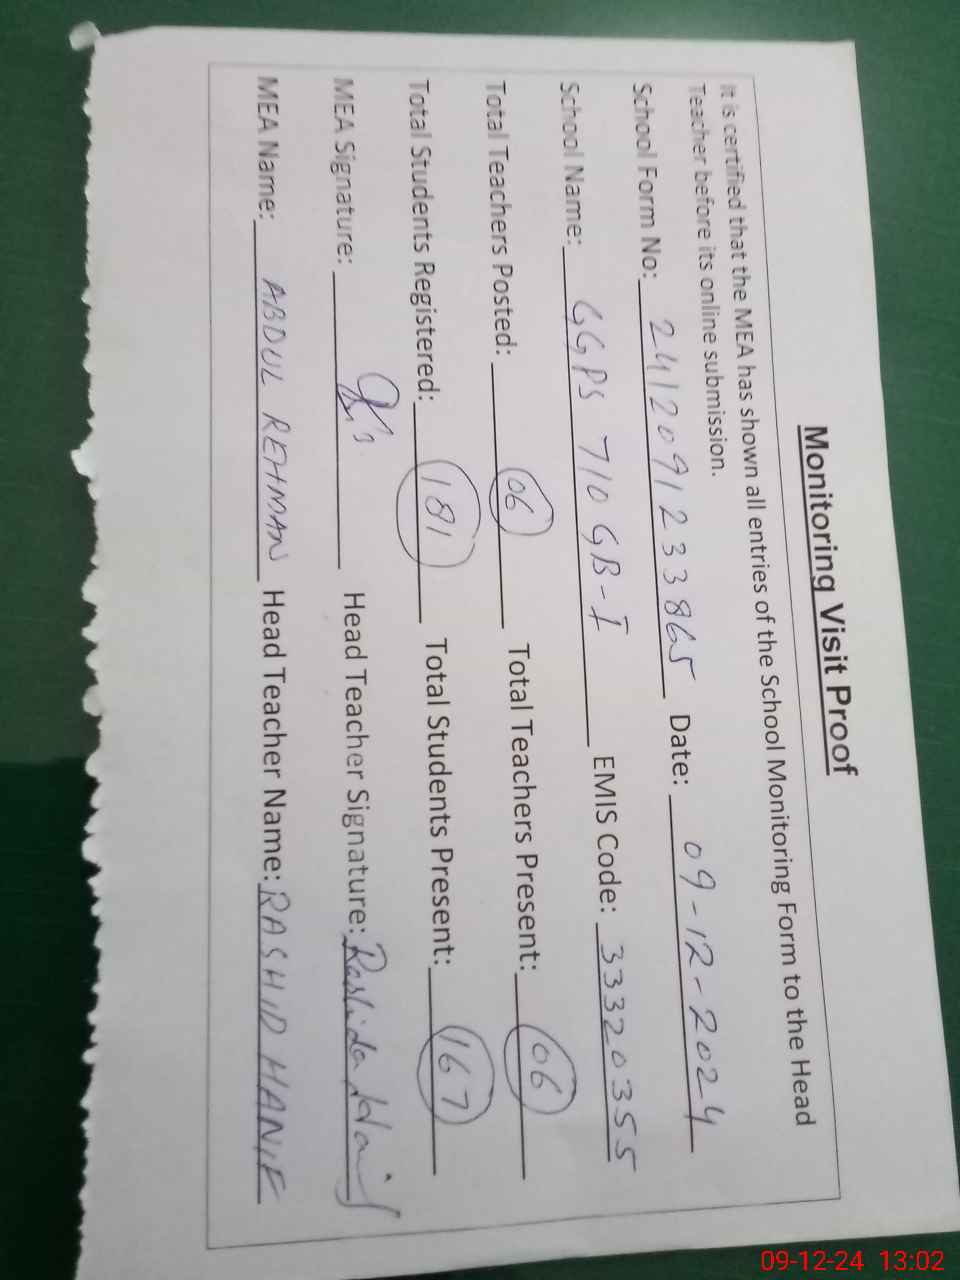 Monitoring Visit Proof
It is certified that the MEA has shown all entries of the School Monitoring Form to the Head
Teacher before its online submission.
School Form No: 2412091233865 Date: 09-12-2024
School Name: GGPS 710 GB-I EMIS Code: 33320355
Total Teachers Posted: 06 Total Teachers Present: 06
Total Students Registered: 181 Total Students Present: 167
MEA Signature: Head Teacher Signature: Rashida Hanif
MEA Name: ABDUL REHMAN Head Teacher Name: RASHID HANIF
09-12-24 13:02